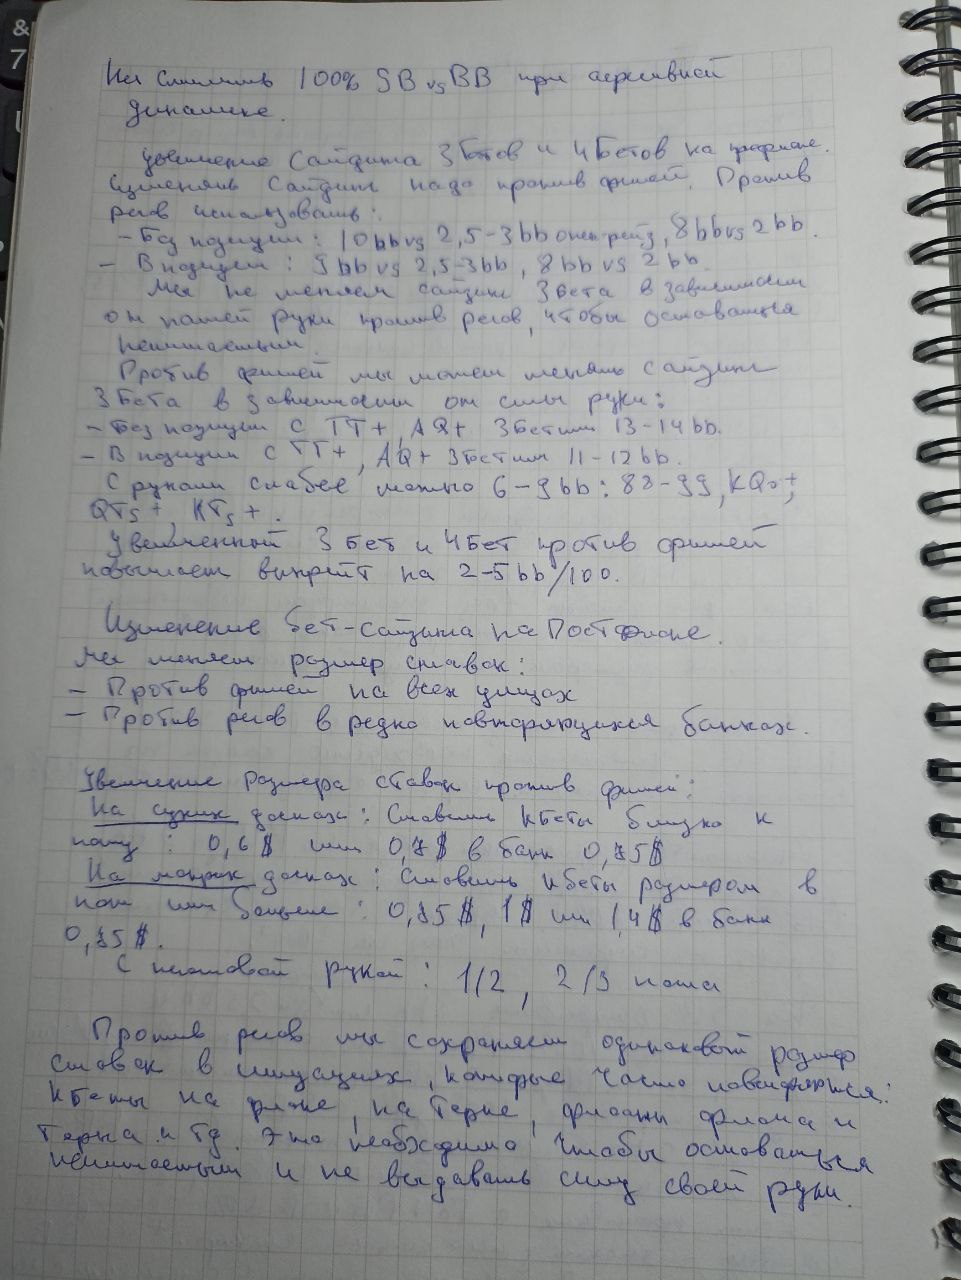 Не стилить 100% SB vs BB при агрессивной
динамике.
Увеличение сайзинга 3бетов и 4бетов на префлопе.
Изменять сайзинг надо против фишей. Против
регов использовать:
- Без позиции: 10bb vs 2,5-3bb опен-рейз, 8bb vs 2bb.
- В позиции: 9bb vs 2,5-3bb, 8bb vs 2bb.
Мы не меняем сайзинг 3бета в зависимости
от нашей руки против регов, чтобы оставаться
нечитаемым.
Против фишей мы можем менять сайзинг
3бета в зависимости от силы руки:
- Без позиции с TT+, AQ+ 3бетим 13-14bb.
- В позиции с TT+, AQ+ 3бетим 11-12bb.
С руками слабее можно 6-9bb: 88-99, KQo+,
QTs+, KTs+.
Увеличенный 3бет и 4бет против фишей
повышает винрейт на 2-5bb/100.
Изменение бет-сайзинга на Постфлопе.
Мы меняем размер ставок:
- Против фишей на всех улицах
- Против регов в редко повторяющихся банках.
Увеличение размера ставок против фишей:
На сухих досках: Ставить кбеты близко к
поту: 0,6$ или 0,7$ в банк 0,75$
На мокрых досках: Ставить кбеты размером в
пот или больше: 0,75$, 1$ или 1,4$ в банк
0,75$.
С неготовой рукой: 1/2, 2/3 пота
Против регов мы сохраняем одинаковый размер
ставок в ситуациях, которые часто повторяются:
кбеты на флопе, на терне, флоаты флопа и
терна и тд. Это необходимо чтобы оставаться
нечитаемым и не выдавать силу своей руки.